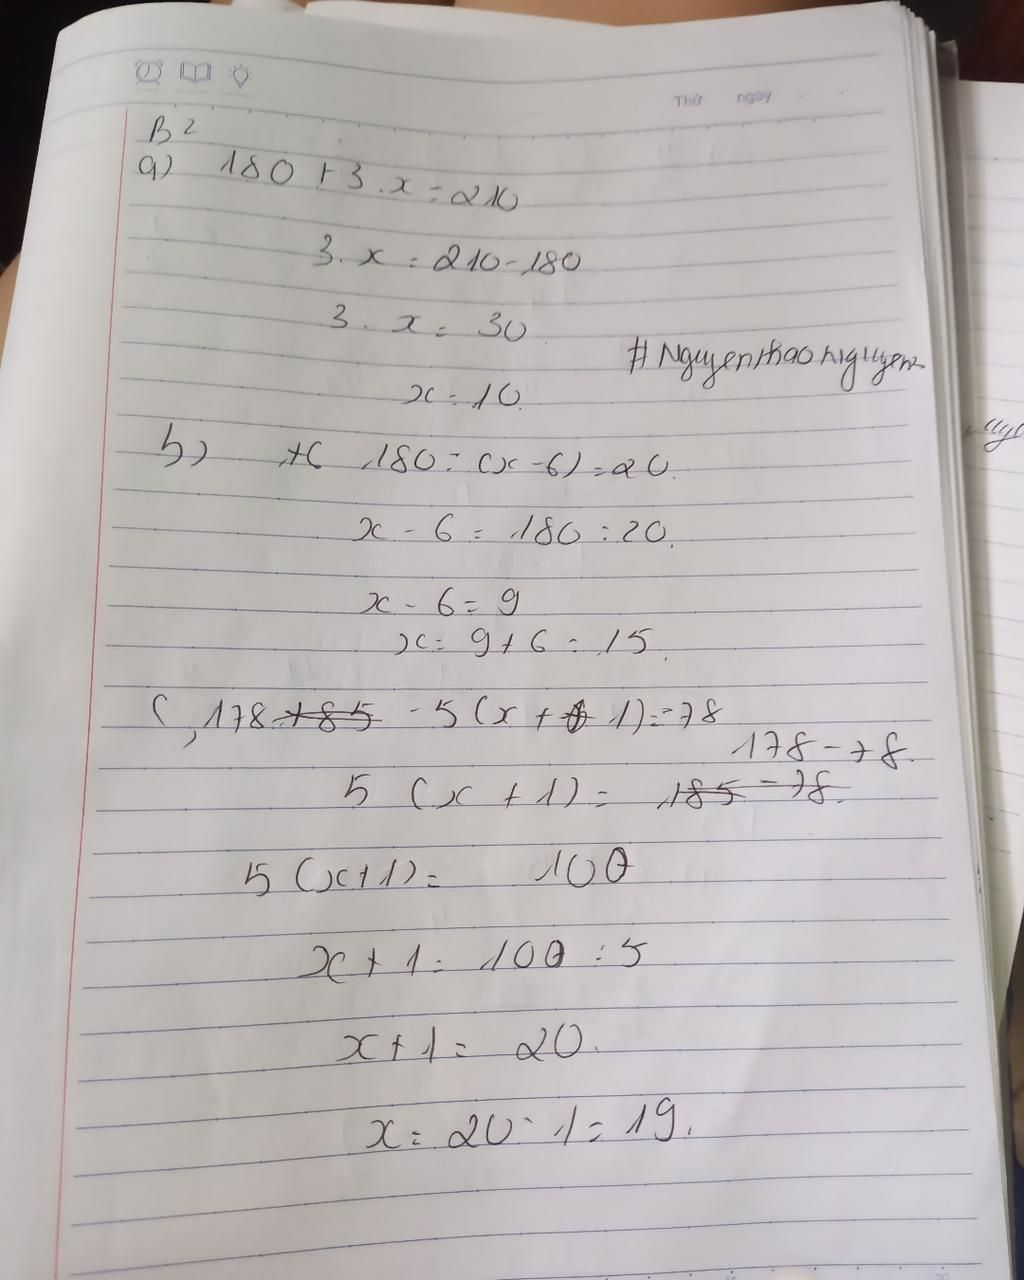 Thứ ngày
B2
a) 180 + 3 . x = 210
3. x = 210 - 180
3. x = 30
# Nguyenthaonguyen
x = 10.
b) 180 : (x - 6) = 20.
x - 6 = 180 : 20.
x - 6 = 9
x = 9 + 6 = 15.
c, 178 - 5 (x + 1) = 78
178 - 78.
5 (x + 1) = 185 - 78.
5 (x + 1) = 100
x + 1 = 100 : 5
x + 1 = 20.
x = 20 - 1 = 19.